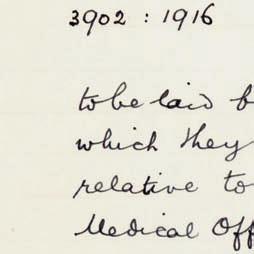 3902 : 1916
to be laid
which they
relative to
Medical Off